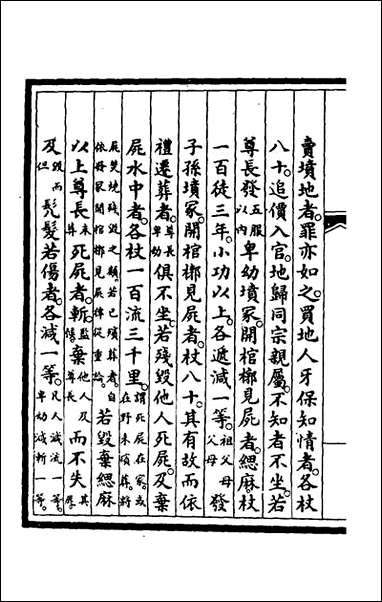 賣墳地者。罪亦如之。買地人牙保知情者。各杖
八十。追價入官。地歸同宗親屬。不知者不坐。若
尊長發五服以內卑幼墳冢。開棺槨見屍者。緦麻杖
一百徒三年。小功以上。各遞減一等。祖父母父母發
子孫墳冢。開棺槨見屍者。杖八十。其有故而依
禮遷葬者。尊長卑幼俱不坐。若殘毀他人死屍。及棄
屍水中者。各杖一百流三千里。謂死屍在家。或在野未殯葬。將
屍焚燒殘毀之類。若已殯葬者。自依發冢開棺槨見屍律從重論。若毀棄緦麻
以上尊長未葬死屍者。斬監候。棄他人及尊長而不失其屍
及毀而但髡髮若傷者。各減一等。凡人減流一等。卑幼減斬一等。